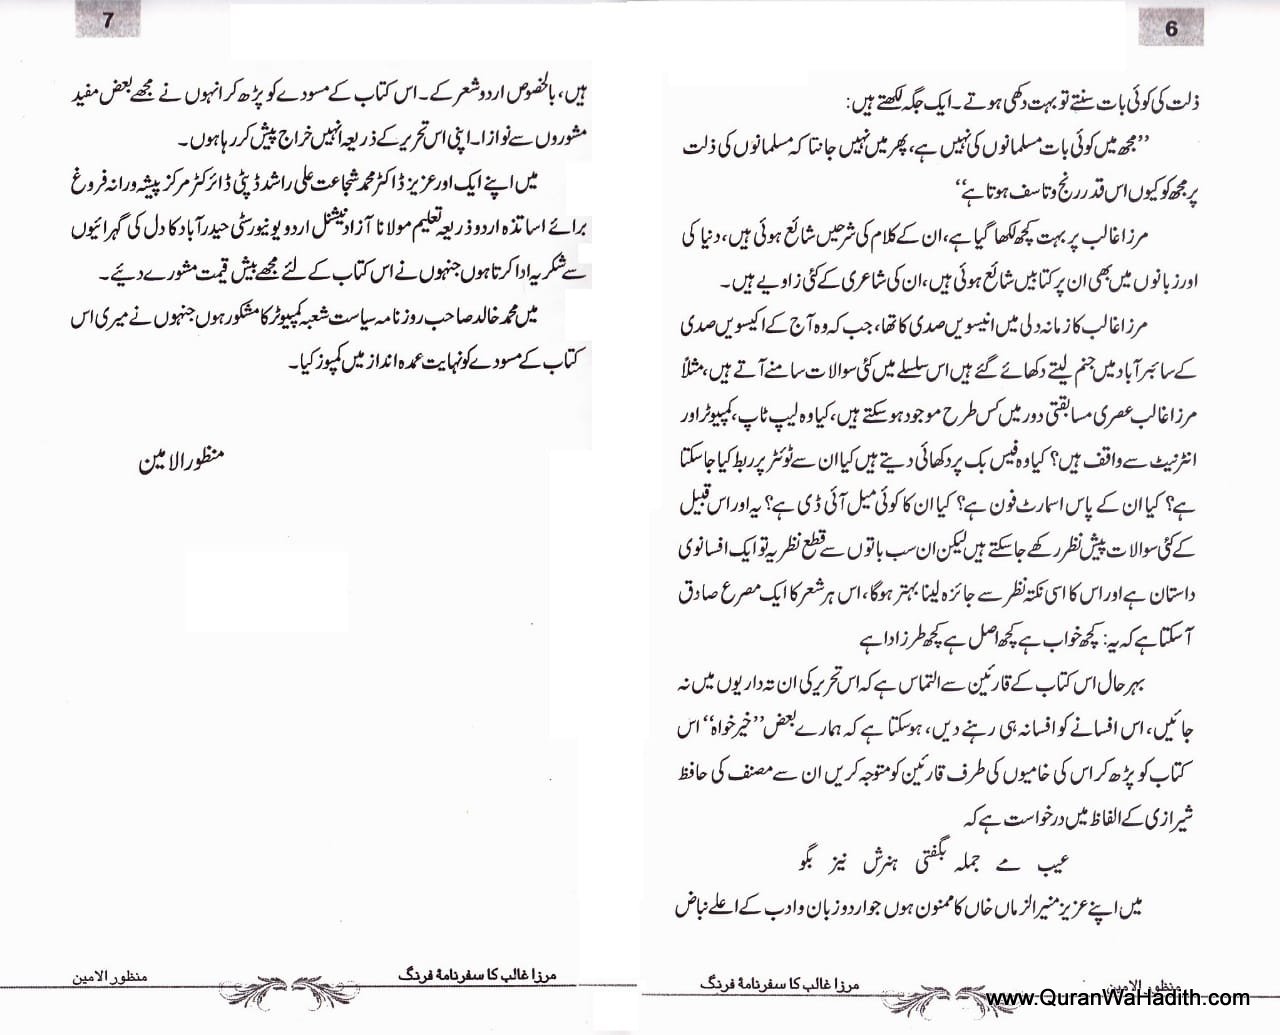 6
ذلت کی کوئی بات سنتے تو بہت دکھی ہوتے۔ ایک جگہ لکھتے ہیں:
”مجھ میں کوئی بات مسلمانوں کی نہیں ہے، پھر میں نہیں جانتا کہ مسلمانوں کی ذلت
پر مجھ کو کیوں اس قدر رنج و تاسف ہوتا ہے“
مرزا غالب پر بہت کچھ لکھا گیا ہے، ان کے کلام کی شرحیں شائع ہوئی ہیں، دنیا کی
اور زبانوں میں بھی ان پر کتابیں شائع ہوئی ہیں، ان کی شاعری کے کئی زاویے ہیں۔
مرزا غالب کا زمانہ دلی میں انیسویں صدی کا تھا، جب کہ وہ آج کے اکیسویں صدی
کے سائبر آباد میں جنم لیتے دکھائے گئے ہیں اس سلسلے میں کئی سوالات سامنے آتے ہیں، مثلاً
مرزا غالب عصری مسابقتی دور میں کس طرح موجود ہو سکتے ہیں، کیا وہ لیپ ٹاپ، کمپیوٹر اور
انٹرنیٹ سے واقف ہیں؟ کیا وہ فیس بک پر دکھائی دیتے ہیں کیا ان سے ٹوئٹر پر ربط کیا جا سکتا
ہے؟ کیا ان کے پاس اسمارٹ فون ہے؟ کیا ان کا کوئی میل آئی ڈی ہے؟ یہ اور اس قبیل
کے کئی سوالات پیش نظر رکھے جا سکتے ہیں لیکن ان سب باتوں سے قطع نظر یہ تو ایک افسانوی
داستان ہے اور اس کا اسی نکتہ نظر سے جائزہ لینا بہتر ہوگا، اس ہر شعر کا ایک مصرع صادق
آ سکتا ہے کہ یہ: کچھ خواب ہے کچھ اصل ہے کچھ طرز ادا ہے
بہر حال اس کتاب کے قارئین سے التماس ہے کہ اس تحریر کی ان تہ داریوں میں نہ
جائیں، اس افسانے کو افسانہ ہی رہنے دیں، ہو سکتا ہے کہ ہمارے بعض ”خیر خواہ“ اس
کتاب کو پڑھ کر اس کی خامیوں کی طرف قارئین کو متوجہ کریں ان سے مصنف کی حافظ
شیرازی کے الفاظ میں درخواست ہے کہ
عیب مے جملہ بگفتی ہنرش نیز بگو
میں اپنے عزیز منیر الزماں خاں کا ممنون ہوں جو اردو زبان و ادب کے اعلے نباض
مرزا غالب کا سفرنامۂ فرنگ
منظور الامین
www.QuranWaHadith.com
7
ہیں، بالخصوص اردو شعر کے۔ اس کتاب کے مسودے کو پڑھ کر انہوں نے مجھے بعض مفید
مشوروں سے نوازا۔ اپنی اس تحریر کے ذریعہ انہیں خراج پیش کر رہا ہوں۔
میں اپنے ایک اور عزیز ڈاکٹر محمد شجاعت علی راشد ڈپٹی ڈائرکٹر مرکز پیشہ ورانہ فروغ
برائے اساتذہ اردو ذریعہ تعلیم مولانا آزاد نیشنل اردو یونیورسٹی حیدرآباد کا دل کی گہرائیوں
سے شکریہ ادا کرتا ہوں جنہوں نے اس کتاب کے لئے مجھے بیش قیمت مشورے دئیے۔
میں محمد خالد صاحب روزنامہ سیاست شعبہ کمپیوٹر کا مشکور ہوں جنہوں نے میری اس
کتاب کے مسودے کو نہایت عمدہ انداز میں کمپوز کیا۔
منظور الامین
مرزا غالب کا سفرنامۂ فرنگ
منظور الامین